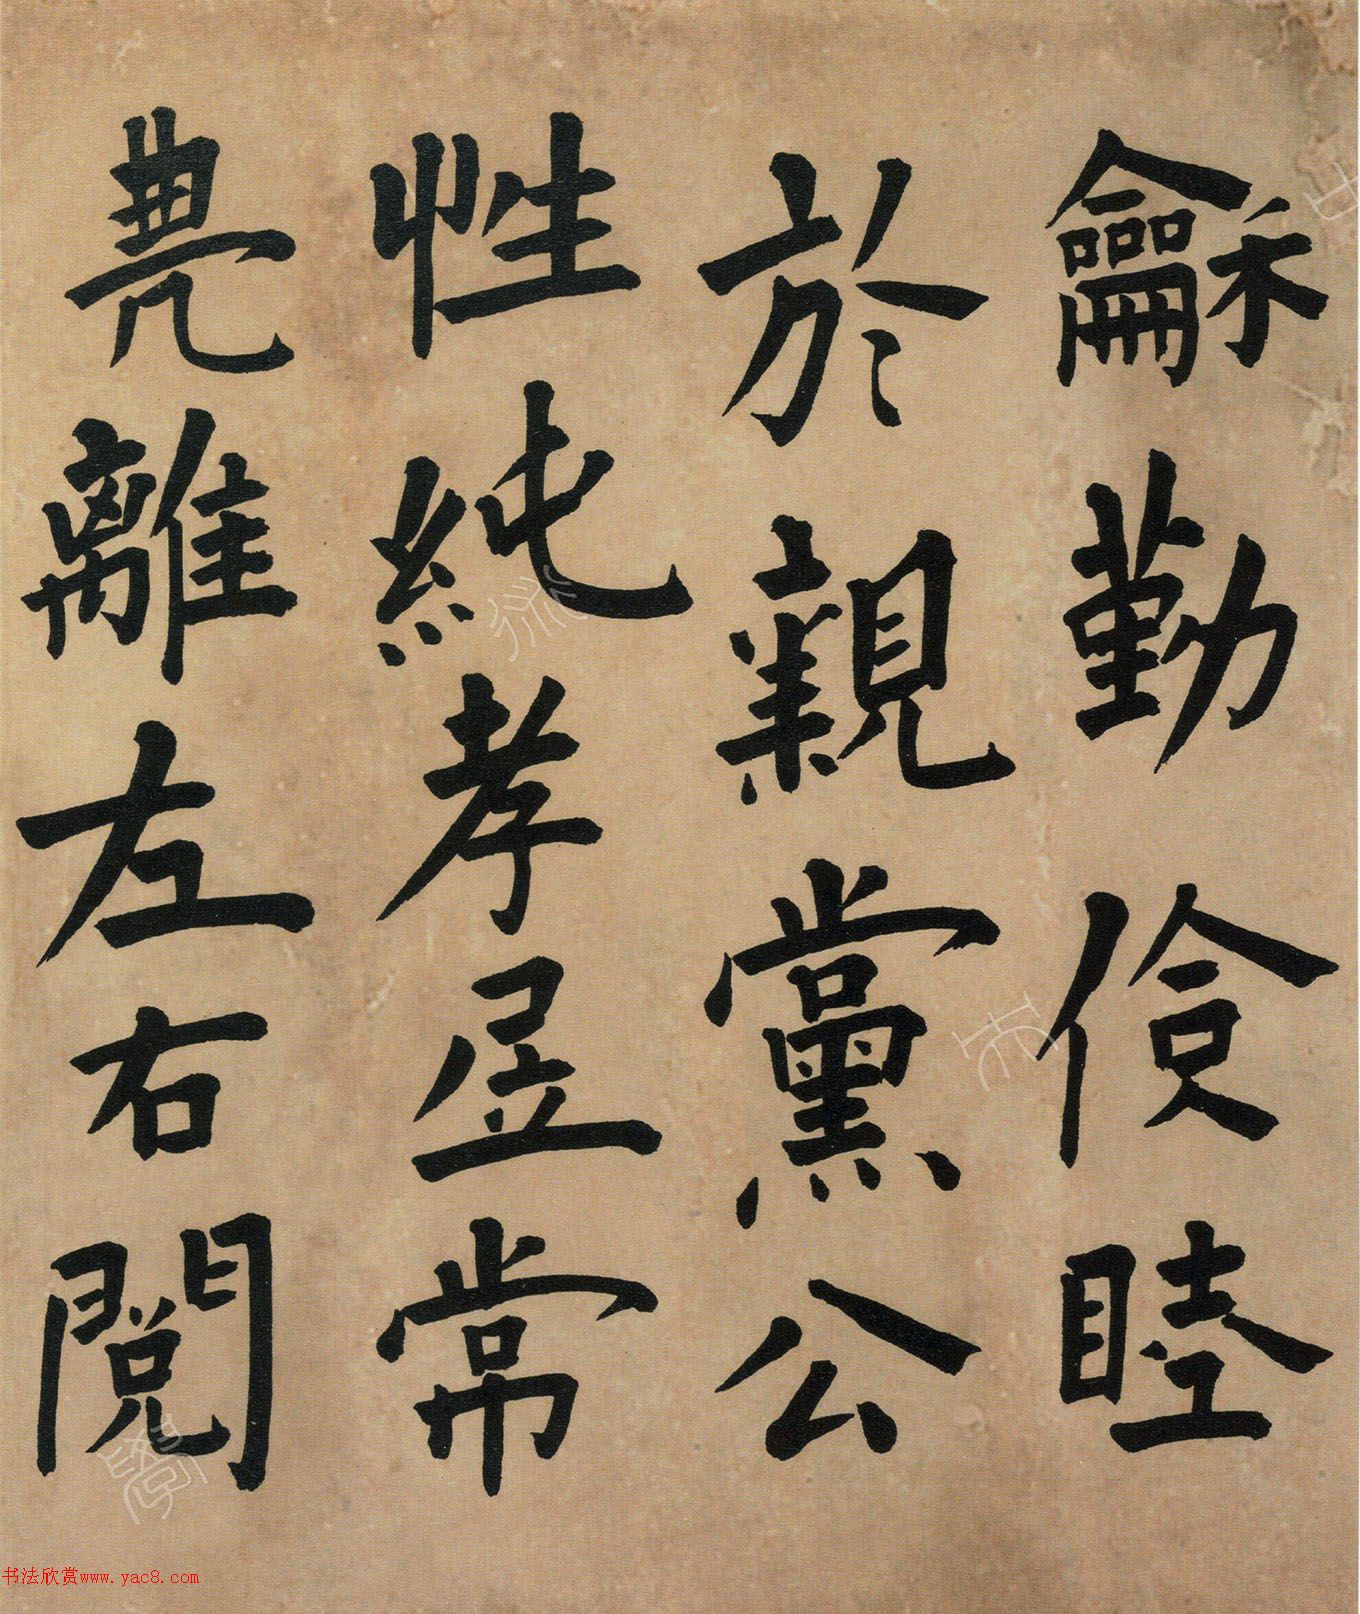 龢勤儉睦
於親黨公
性純孝居常
離左右閱
书法欣赏www.yac8.com